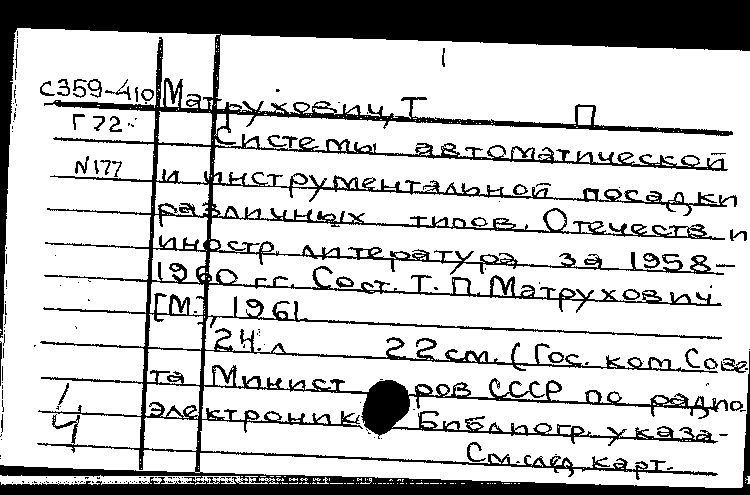 С359-410 Матрухович, Т П
Г72. Системы автоматической
N177 и инструментальной посадки
различных типов. Отечеств. и
иностр. литература за 1958-
1960 гг. Сост. Т. П. Матрухович
[М.], 1961.
24. л 22 см. (Гос. ком. Сове
та Министров СССР по радио
электроник Библиогр. указа-
4 См. след. карт.